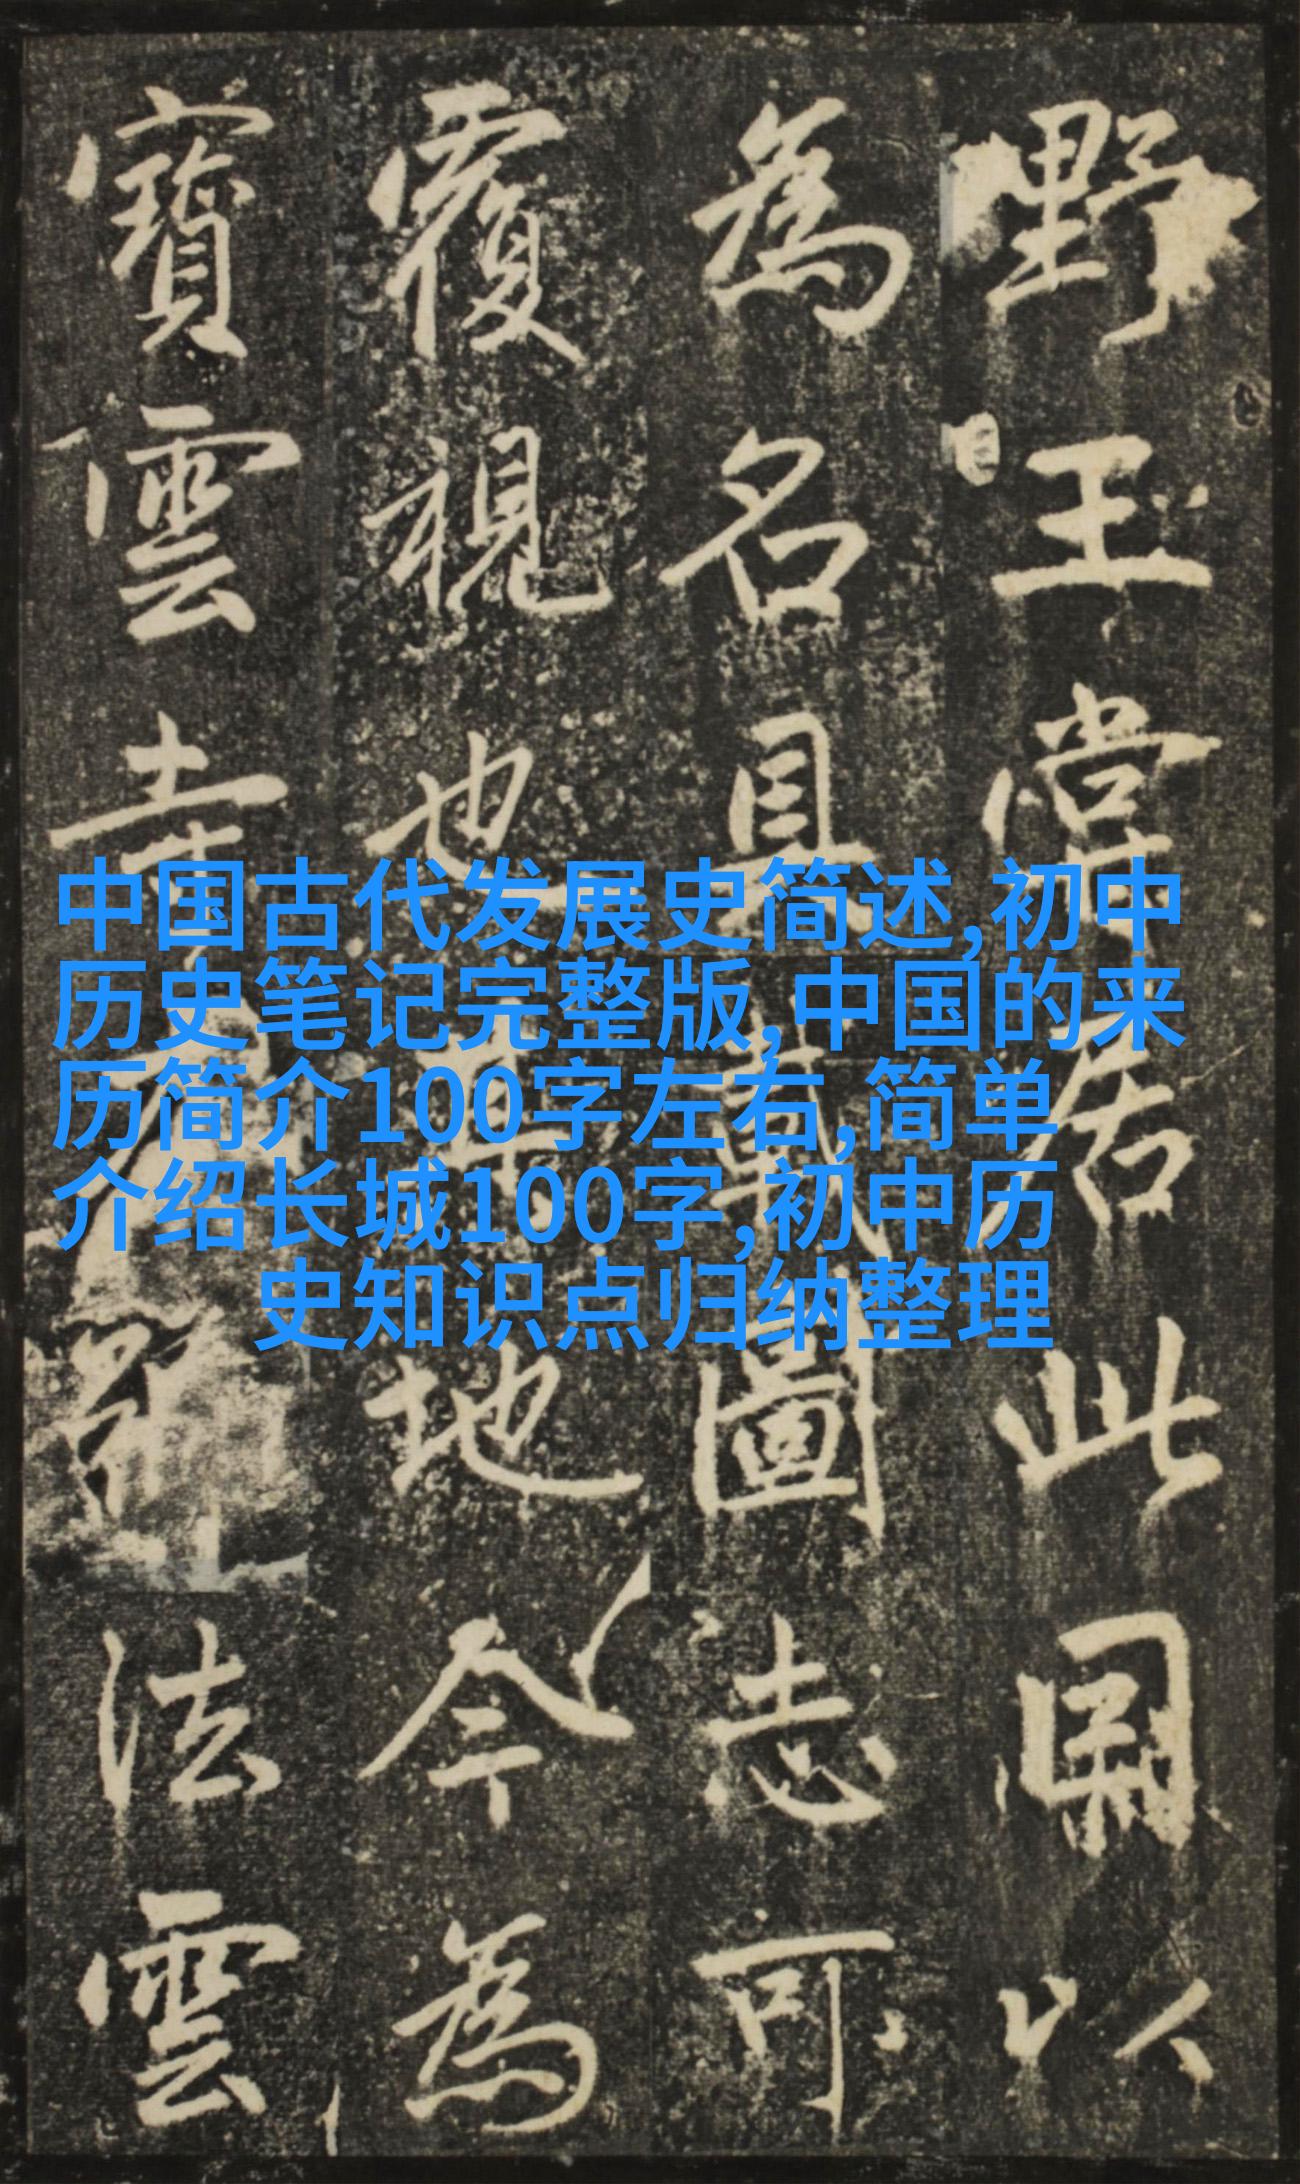 野王嘗居此因以
為名具載圖志可
覆視也其地今為
寶雲寺
法雲
中国古代发展史简述,初中
历史笔记完整版,中国的来
历简介100字左右,简单
介绍长城100字,初中历
史知识点归纳整理